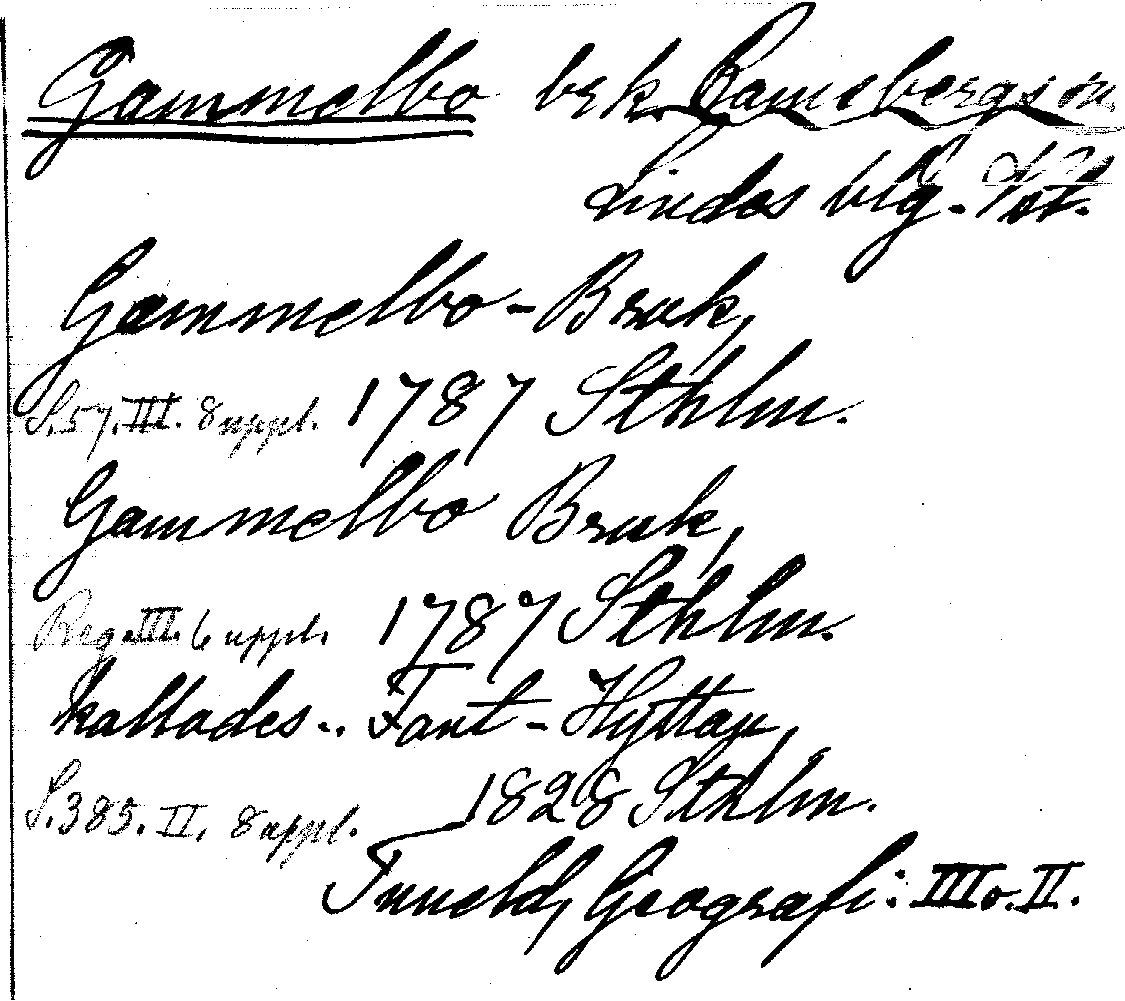 Gammelbo brk Ramsbergs sn.
Lindes blg.
Gammelbo-Bruk,
S.57.III. 8 uppl. 1787 Sthlm.
Gammelbo Bruk,
Reg. III. 6 uppl. 1787 Sthlm.
kallades.. Fant-Hyttan,
S.385. II. 8 uppl. 1828 Sthlm.
Tuneld, Geografi: III o. II.